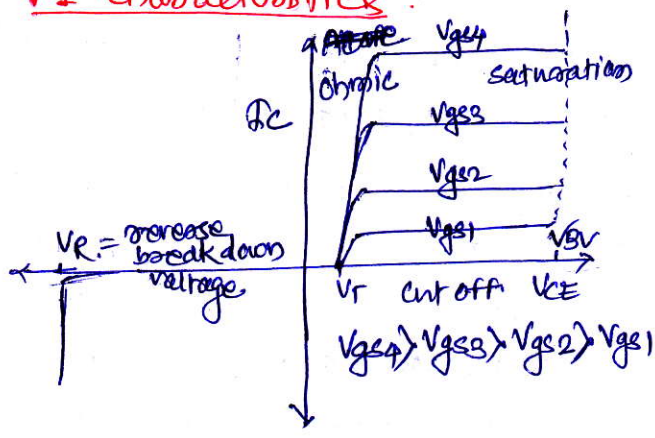 VI Characteristics :
Vgs4
ohmic
saturation
Ic
Vgs3
Vgs2
Vgs1
VR = reverse
breakdown
voltage
VBV
VT cut off VCE
Vgs4 > Vgs3 > Vgs2 > Vgs1